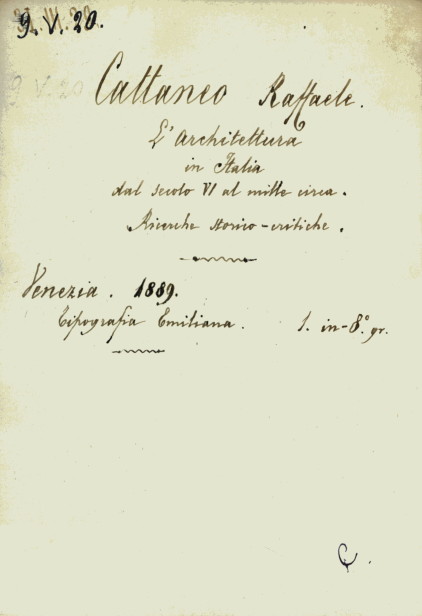 9. V. 20.
Cattaneo Raffaele.
L'Architettura
in Italia
dal secolo VI al mille circa.
Ricerche storico-critiche.
Venezia. 1889.
Tipografia Emiliana. 1. in-8° gr.
C.